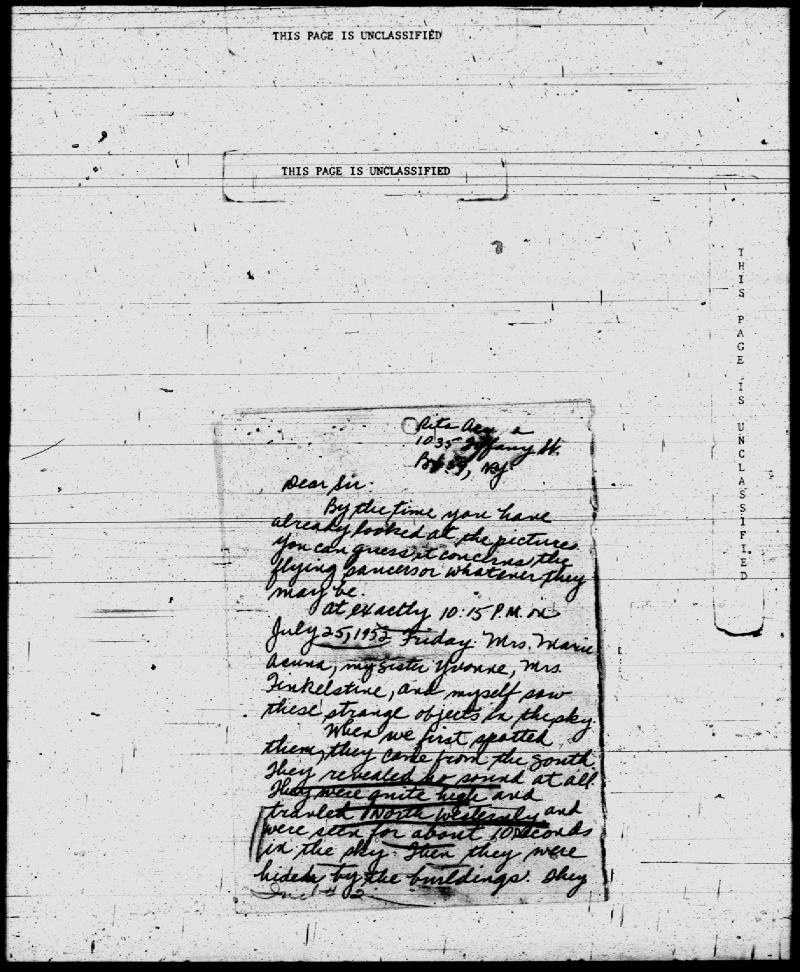 THIS PAGE IS UNCLASSIFIED
THIS PAGE IS UNCLASSIFIED
THIS PAGE IS UNCLASSIFIED
Rita
1035 Tiffany St.
NY
Dear Sir.
By the time you have
already looked at the pictures
you can guess it concerns the
flying saucers or whatever they
may be.
At exactly 10:15 P.M. on
July 25, 1952 Friday Mrs. Marie
Acuna, my sister Yvonne, Mrs.
Finkelstine, and myself saw
these strange objects in the sky.
When we first spotted
them, they came from the South
They revealed no sound at all.
They were quite high and
travled North Westernly and
were seen for about 10 seconds
in the sky. Then they were
hiden by the buildings. They
Incl # 2